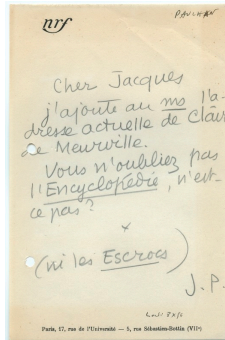 nrf
PAULHAN
Cher Jacques
j'ajoute au ms l'a-
dresse actuelle de Clair
de Meurville.
Vous n'oubliez pas
l'Encyclopédie, n'est-
ce pas?
x
(ni les Escrocs)
J. P.
Paris, 17, rue de l'Université — 5, rue Sébastien-Bottin (VIIᵉ)